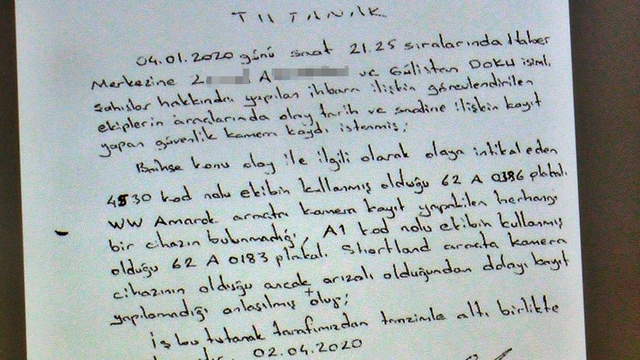 TUTANAK
04.01.2020 günü saat 21.25 sıralarında Haber
Merkezine Z A ve Gülistan Doku isimli
şahıslar hakkında yapılan ihbara ilişkin görevlendirilen
ekiplerin araçlarında olay, tarih ve saatine ilişkin kayıt
yapan güvenlik kamera kaydı istenmiş;
Bahse konu olay ile ilgili olarak olaya intikal eden
4530 kod nolu ekibin kullanmış olduğu 62 A 0386 plakal.
WW Amarok armatrı kamera kayıt yapabilen herhangi
bir cihazın bulunmadığı, A1 kod nolu ekibin kullanmış
olduğu 62 A 0183 plakal. Shortland armata kamera
cihazının olduğu ancak arızalı olduğundan dolayı kayıt
yapılamadığı anlaşılmış olup;
İş bu tutanak tarafımızdan tanzimle altı birlikte
02.04.2020